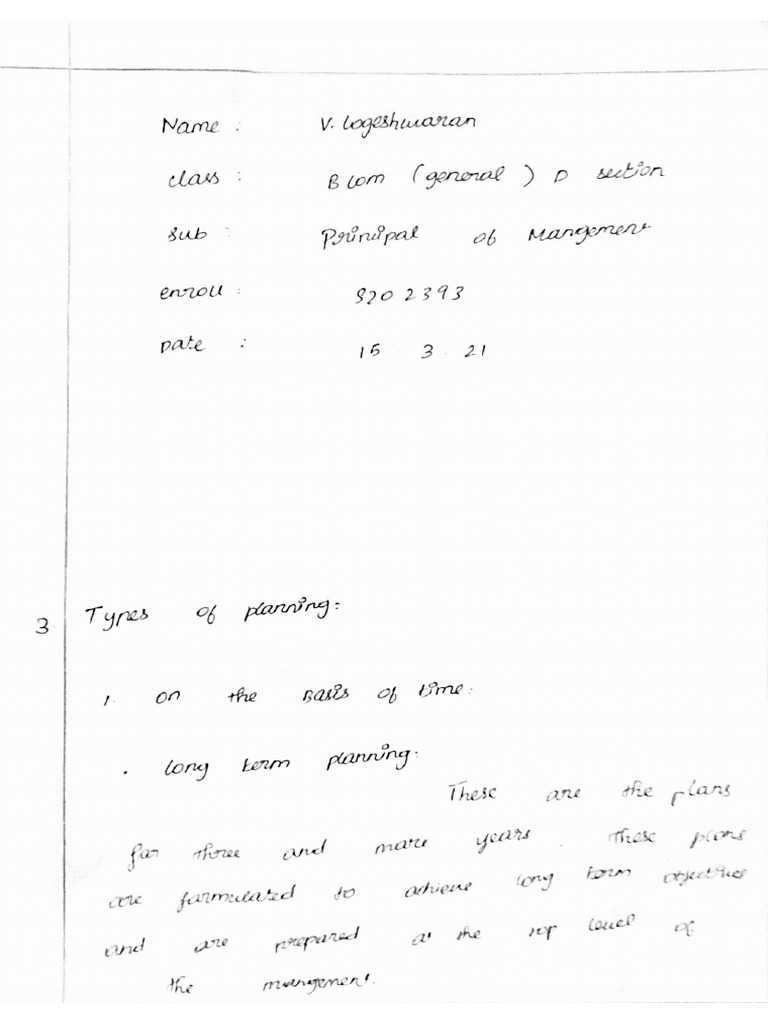 Name : V. Logeshwaran
class : B com (general) D section
sub : Prinipal of Mangement
enroll : 8202393
Date : 15 . 3 . 21
3 Types of planning:
1. on the Basis of time:
. long term planning:
These are the plans
for three and more years . These plans
are formulated to achieve long term objectives
and are prepared at the top level of
the mangement.